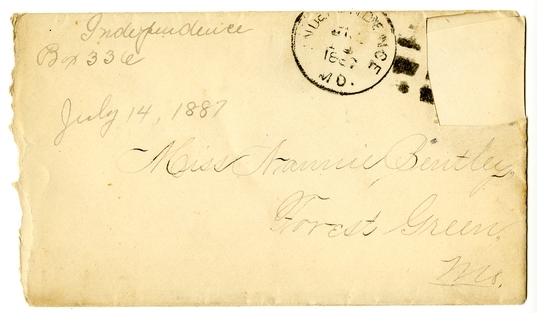 Independence
Box 336
INDEPENDENCE
1887
MO.
July 14, 1887
Miss Nannie Bentley,
Forest Green,
Mo.